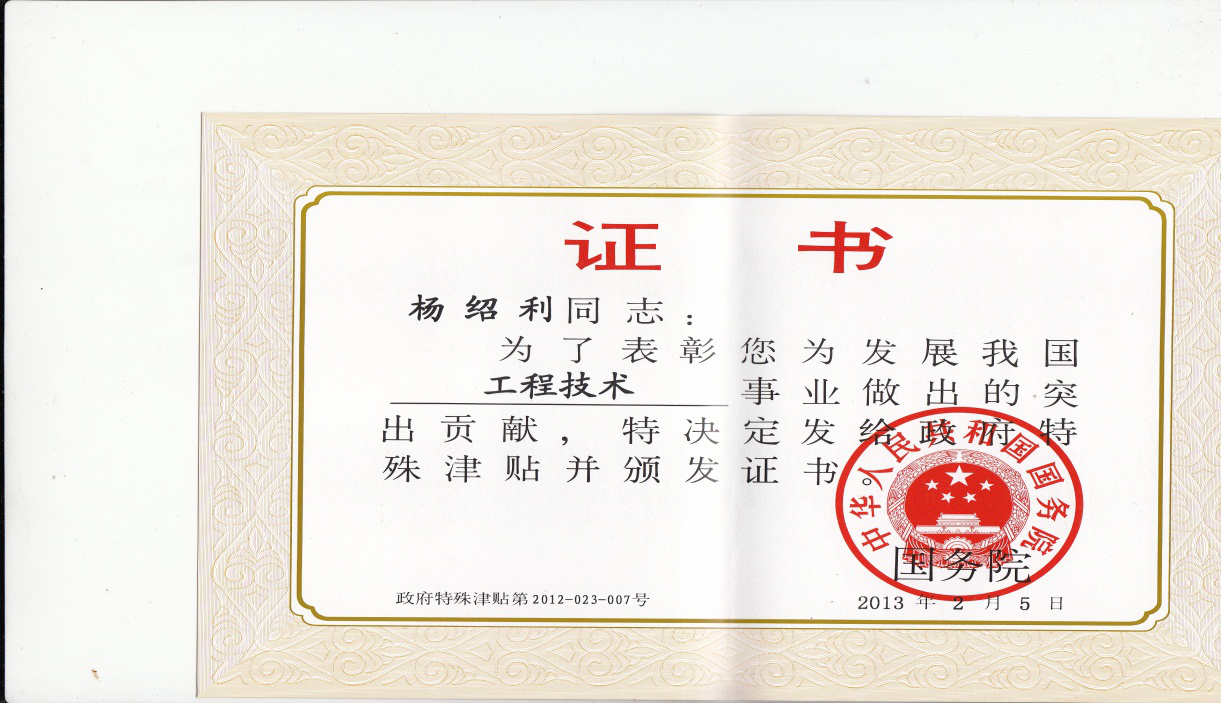 证书
杨绍利同志：
为了表彰您为发展我国
工程技术事业做出的突
出贡献，特决定发给政府特
殊津贴并颁发证书。
中华人民共和国国务院
国务院
政府特殊津贴第2012-023-007号
2013年2月5日